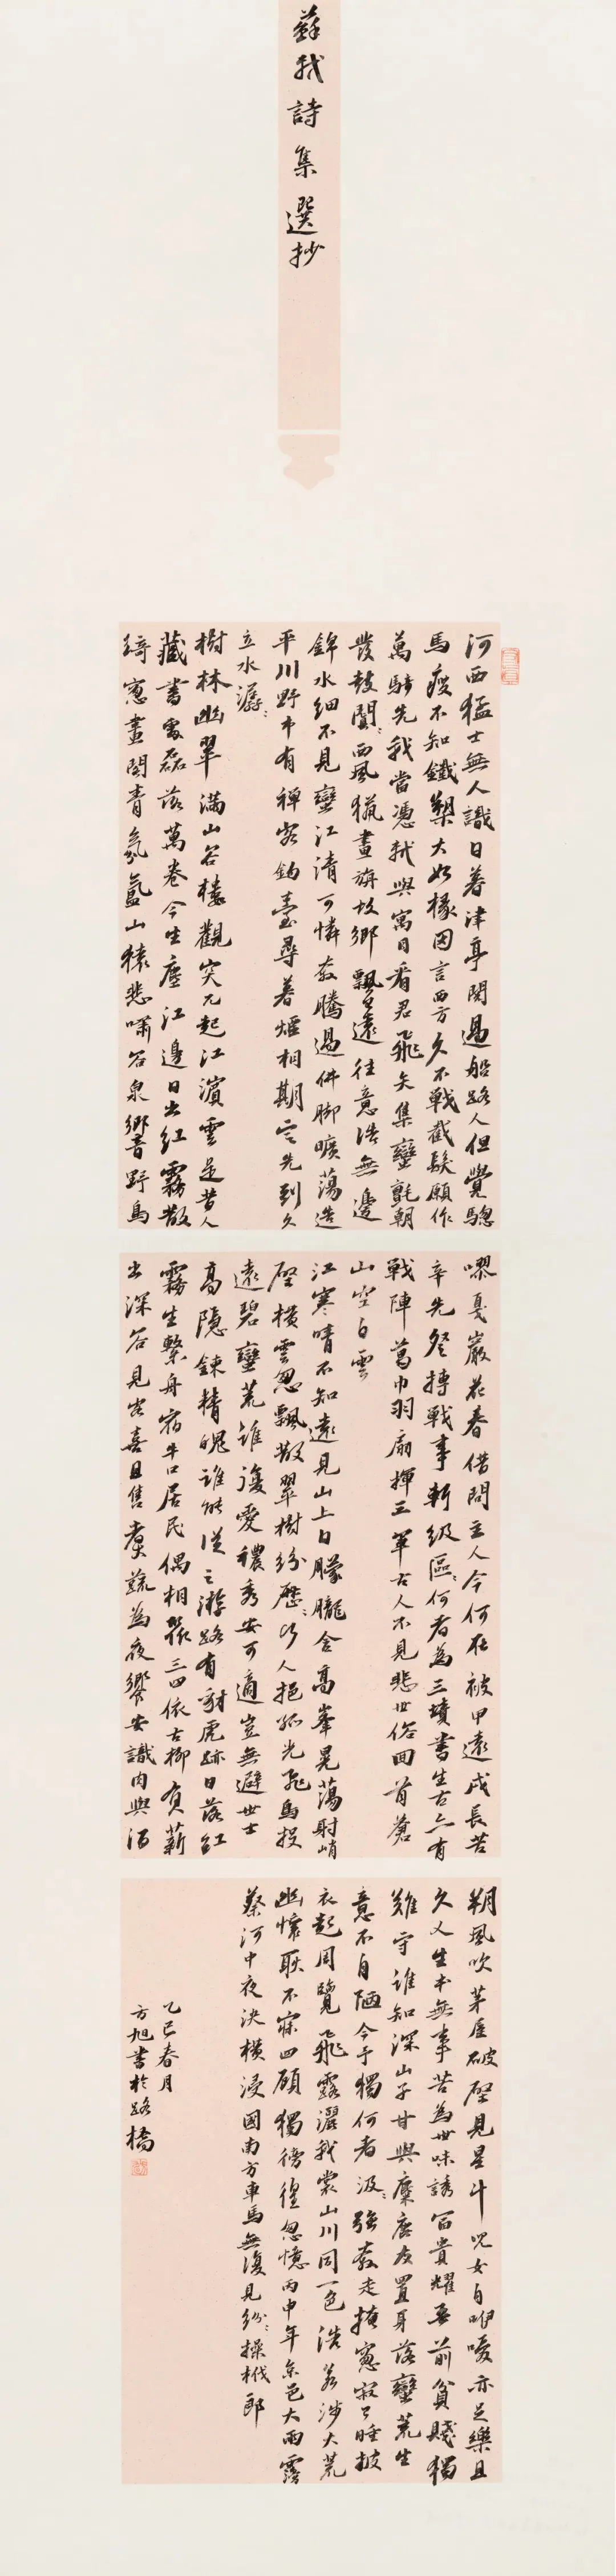 蘇軾詩集選抄
河西猛士無人識日暮津亭閱過船路人但覺驄
馬瘦不知鐵槊大如椽因言西方久不戰截髮願作
萬騎先我當憑軾與寓目看君飛矢集蠻氈朝
發鼓闐闐西風獵畫旃故鄉飄已遠往意浩無邊
錦水細不見蠻江清可憐奔騰過佛腳曠蕩造
平川野市有禪客釣臺尋暮煙相期定先到久
立水潺潺
樹林幽翠滿山谷樓觀突兀起江濱雲是昔人
藏書處磊落萬卷今生塵江邊日出紅霧散
綺窗畫閣青氛氳山猿悲嘯谷泉響野鳥
嘐戛巖花春借問主人今何在被甲遠戍長苦
辛先登搏戰事斬級區區何者為三墳書生古亦有
戰陣葛巾羽扇揮三軍古人不見悲世俗回首蒼
山空白雲
江寒晴不知遠見山上日朦朧含高峯晃蕩射峭
壁橫雲忽飄散翠樹紛歷歷行人挹孤光飛鳥投
遠碧蠻荒誰復愛穠秀安可適豈無避世士
高隱鍊精魄誰能從之游路有豺虎跡日落紅
霧生繫舟宿牛口居民偶相聚三四依古柳負薪
出深谷見客喜且售煮蔬為夜飧安識肉與酒
朔風吹茅屋破壁見星斗兒女自咿嚘亦足樂且
久人生本無事苦為世味誘富貴耀吾前貧賤獨
難守誰知深山子甘與麋鹿友置身落蠻荒生
意不自陋今予獨何者汲汲強奔走掩窗寂已睡披
衣起周覽飛露濕我裳山川同一色浩若涉大荒
幽懷耿不寐四顧獨徬徨忽憶丙申年京邑大雨霶
蔡河中夜決橫浸國南方車馬無復見紛紛操栰郎
乙巳春月
方旭書於路橋